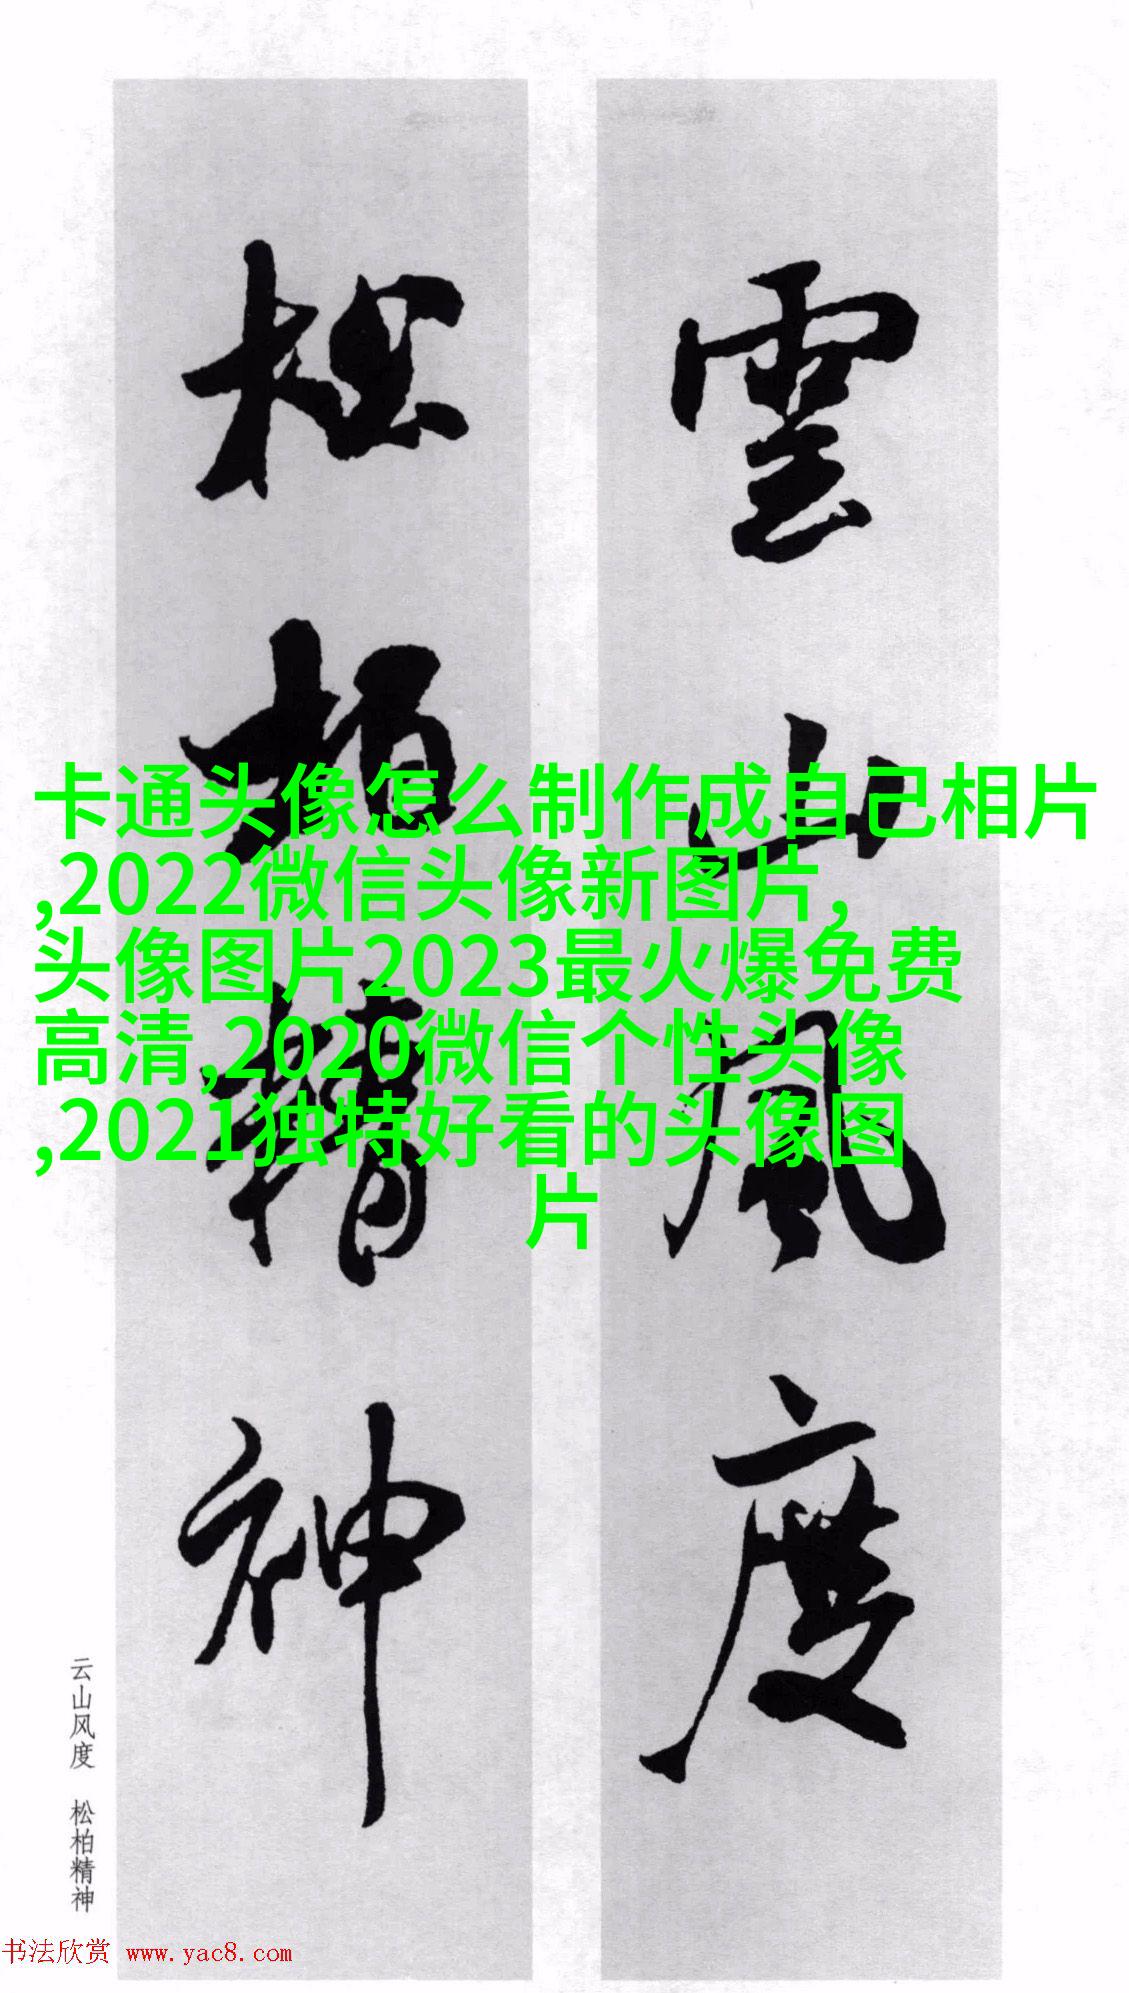 雲山風度
松柏精神
卡通头像怎么制作成自己相片
,2022微信头像新图片,
头像图片2023最火爆免费
高清,2020微信个性头像
,2021独特好看的头像图
片
云山风度 松柏精神
书法欣赏 www.yac8.com